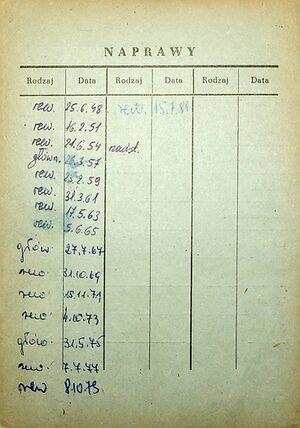 NAPRAWY
Rodzaj Data Rodzaj Data Rodzaj Data
rew. 25.6.48 rew. 15.7.81
rew. 16.2.51
rew. 21.6.54 nadst.
główn. 26.3.57
rew. 25.2.59
rew. 31.3.61
rew. 17.5.63
rew. 5.6.65
głów. 27.7.67
rew. 31.10.69
rew. 18.11.71
rew. 4.10.73
głów. 31.5.75
rew. 7.7.77
rew 8.10.79